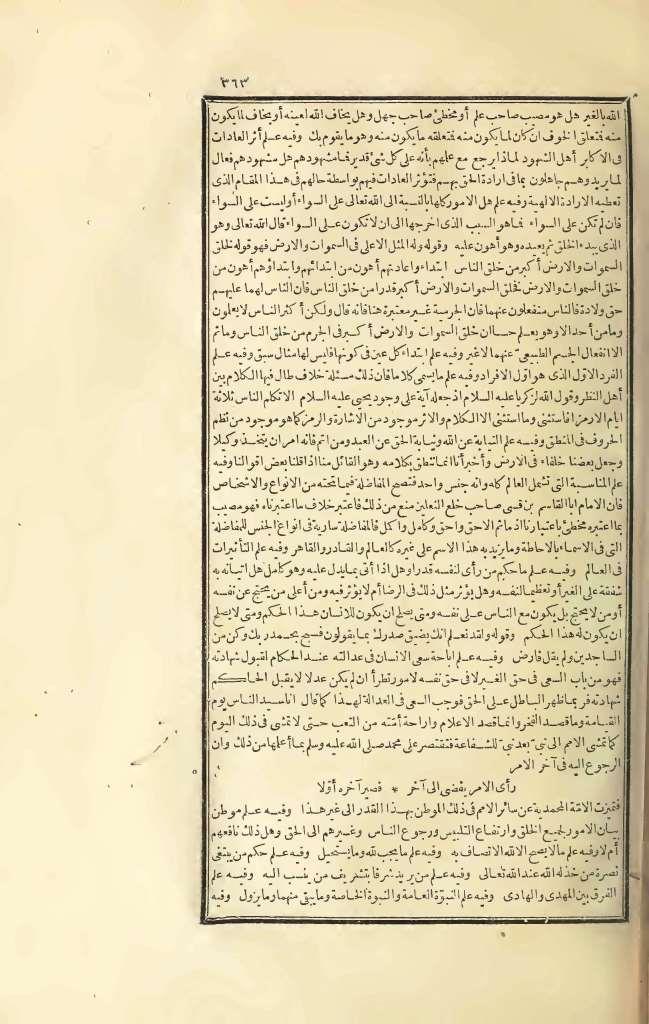 ٣٦٣
الله بالغير هل هو مصيب صاحب علم أو مخطئ صاحب جهل وهل يخاف الله لعينه أو يخاف لما يكون
منه فتعلق الخوف ان كان لما يكون منه فمتعلقه ما يكون منه وهو ما يقوم بك وفيه علم أثر العادات
فى الاكابر أهل الشهود لماذا يرجع مع علمهم بأنه على كل شئ قدير فما مشهودهم هل مشهودهم فعال
لما يريد وهم جاهلون بما فى ارادة الحق بهم فتؤثر العادات فيهم بواسطة حالهم فى هذا المقام الذى
تعطيه الارادة الالهية وفيه علم هل الامور كلها بالنسبة الى الله تعالى على السواء أو ليست على السواء
فان لم تكن على السواء فما هو السبب الذى اخرجها الى ان لا تكون على السواء قال الله تعالى وهو
الذى يبدء الخلق ثم يعيده وهو أهون عليه وقوله وله المثل الاعلى فى السموات والارض فهو قوله لخلق
السموات والارض أكبر من خلق الناس ابتداء واعادتهم أهون من ابتدائهم وابتداؤهم أهون من
خلق السموات والارض فخلق السموات والارض أكبر قدرا من خلق الناس فان الناس لهما عليهم
حق ولادة فالناس منفعلون عنهما فان الجرمية غير معتبرة هنا فانه قال ولكن أكثر الناس لا يعلمون
وما من أحد الا وهو يعلم حسا ان خلق السموات والارض أكبر فى الجرم من خلق الناس وما ثم
الا انفعال الجسم الطبيعى عنهما لا غير وفيه علم ابتداء كل عين فى كونها فليس لها مثال سبق وفيه علم
الفرد الاول الذى هو اول الافراد وفيه علم ما يسمى كلاما فان ذلك مسئلة خلاف طال فيها الكلام بين
أهل النظر وقول الله لزكريا عليه السلام اذ جعله آية على وجود يحيى عليه السلام الا تكلم الناس ثلاثة
ايام الا رمزا فاستثنى وما استثنى الا الكلام والاثر موجود من الاشارة والرمز كما هو موجود من نظم
الحروف فى المنطق وفيه علم النيابة عن الله ونيابة الحق عن العبد ومن اتم فانه امر ان يتخذ وكيلا
وجعل بعضنا خلفاء فى الارض وأخبر أنا انما تنطق بكلامه وهو القائل منا اذا قلنا بعض اقوالنا وفيه
علم المناسبة التى تشمل العالم كله وانه جنس واحد فتصح المفاضلة فيما تحته من الانواع والاشخاص
فان الامام ابا القاسم بن قسى صاحب خلع النعلين منع من ذلك فاعتبر خلاف ما اعتبرناه فهو مصيب
بما اعتبره مخطئ باعتبارنا اذ ما ثم الا حق واحق وكامل واكمل فالمفاضلة سارية فى انواع الجنس للمفاضلة
التى فى الاسماء بالاحاطة وما يزيد به هذا الاسم على غيره كالعالم والقادر والقاهر وفيه علم التأثيرات
فى العالم وفيه علم ما حكم من رأى لنفسه قدرا وهل اذا أتى بما يدل عليه وهو كامل هل اتيانه به
شفقة على الغير أو تعظيما لنفسه وهل يؤثر مثل ذلك فى الرضا أم لا يؤثر فيه ومن أعلى من يحتج عن نفسه
أو من لا يحتج بل يكون مع الناس على نفسه ومتى يصلح ان يكون للانسان هذا الحكم ومتى لا يصلح
ان يكون له هذا الحكم وقوله ولقد نعلم انك يضيق صدرك بما يقولون فسبح بحمد ربك وكن من
الساجدين ولم يقل فارض وفيه علم اباحة سعى الانسان فى عدالته عند الحكام لقبول شهادته
فهو من باب السعى فى حق الغير لا فى حق نفسه لامور تطرأ ان لم يكن عدلا لا يقبل الحاكم
شهادته فربما يظهر الباطل على الحق فوجب السعى فى العدالة لهذا كما قال انا سيد الناس يوم
القيامة وما قصد الفخر وانما قصد الاعلام واراحة أمته من التعب حتى لا تمشى فى ذلك اليوم
كما تمشى الامم الى نبىّ بعد نبىّ للشفاعة فتقتصر على محمد صلى الله عليه وسلم بما أعلمها من ذلك وان
الرجوع اليه فى آخر الامر
رأى الامر يفضى الى آخر * فصير آخره أوّلا
فتميزت الامّة المحمدية عن سائر الامم فى ذلك الموطن بهذا القدر الى غير هذا وفيه علم موطن
بيان الامور لجميع الخلق وارتفاع التلبيس ورجوع الناس وغيرهم الى الحق وهل ذلك نافعهم
أم لا وفيه علم ما لا يصح الا لله الاتصاف به وفيه علم ما يجب لله وما يستحيل وفيه علم حكم من يبتغى
نصرة من خذله الله عند الله تعالى وفيه علم من يريد شرفا بتشريف من ينسب اليه وفيه علم
الفرق بين المهدى والهادى وفيه علم النبوّة العامة والنبوة الخاصة وما يبقى منهما وما يزول وفيه